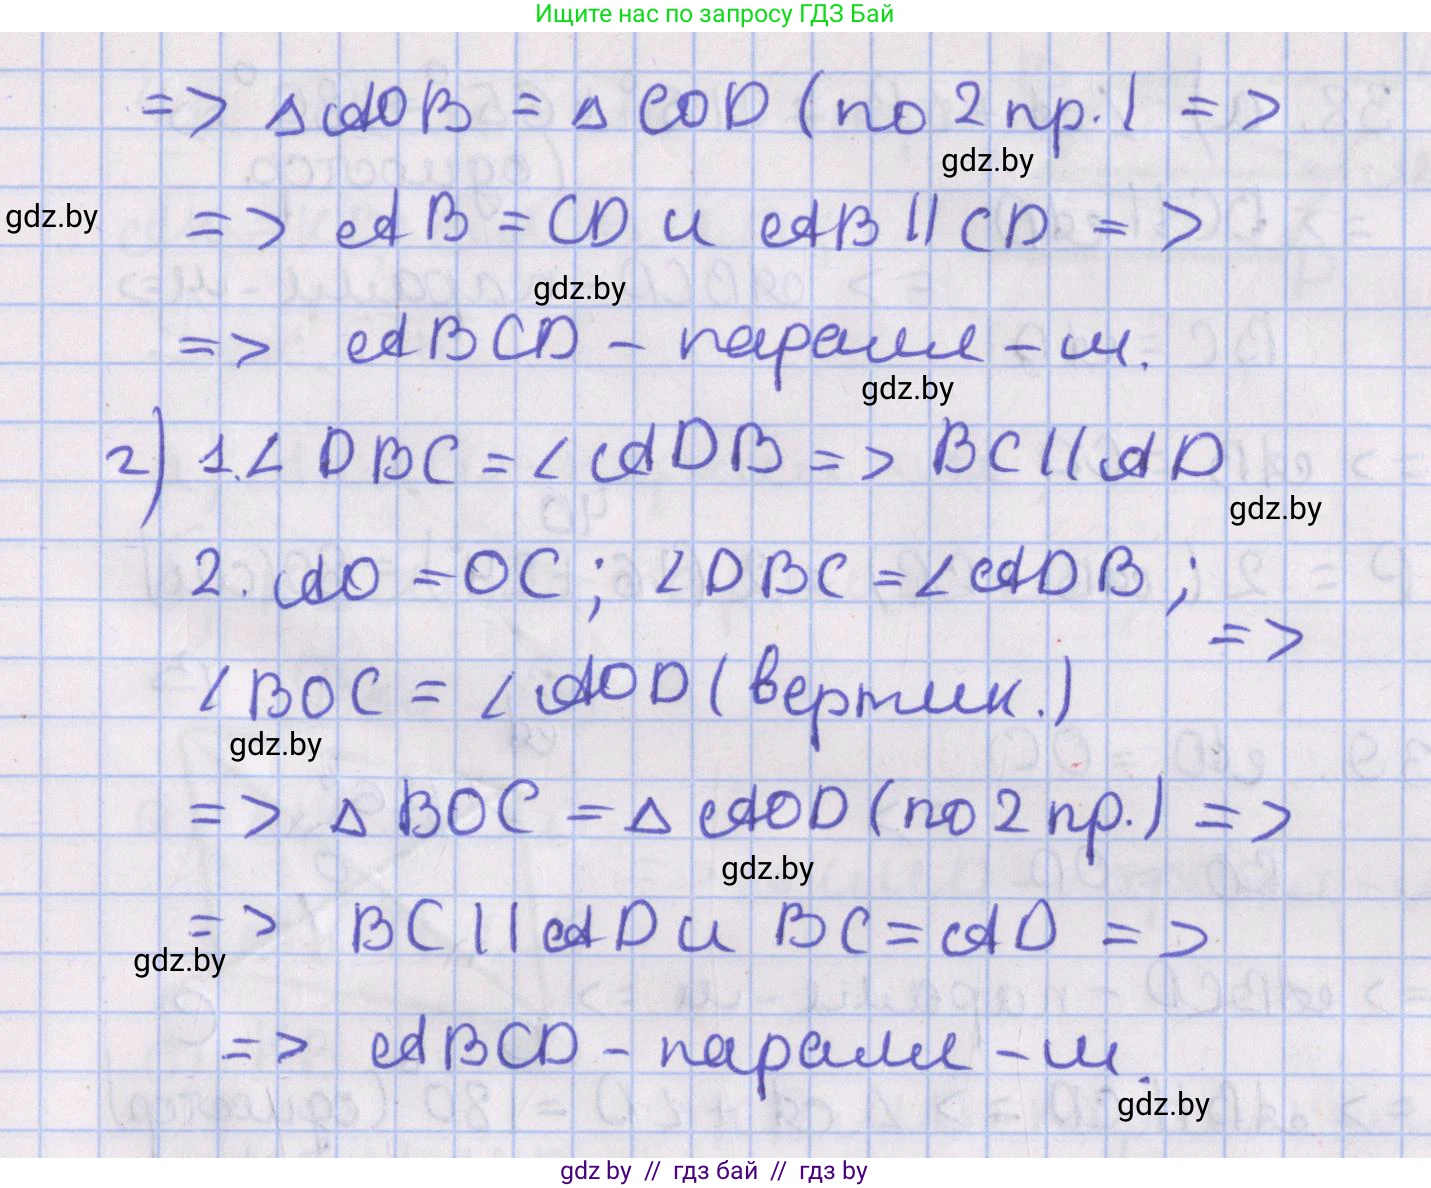 Ищите нас по запросу ГДЗ Бай
=> △AOB = △COD (по 2 пр.) =>
gdz.by
gdz.by
=> AB = CD и AB || CD =>
gdz.by
=> ABCD - паралл-м.
gdz.by
г) 1. ∠DBC = ∠ADB => BC || AD
gdz.by
2. AO = OC; ∠DBC = ∠ADB; =>
∠BOC = ∠AOD (вертик.)
gdz.by
=> △BOC = △AOD (по 2 пр.) =>
gdz.by
=> BC || AD и BC = AD =>
gdz.by
=> ABCD - паралл-м.
gdz.by
gdz by // гдз бай // гдз by